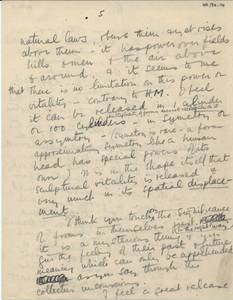 5
natural laws, obeys them & yet rises
above them - it has power over fields
hills & men & the air above
& around & it seems to me
that there is no limitation on this power or
vitality - contrary to HM. I feel
it can be released in 1 cylinder
or 100 cylinders - in symetry or
assymetry. Symetry is rare - a form
approximating symetry like a human
head has special powers of its
own. It is in the shape itself that
sculptural vitality is released &
very much in its spatial displace-
ment.
I think you touch the significance
of forms in themselves
it is a mysterious thing
give the feeling of their past & future
meanings which can only be apprehended
as you say through the
collective unconscious.
I feel a great release